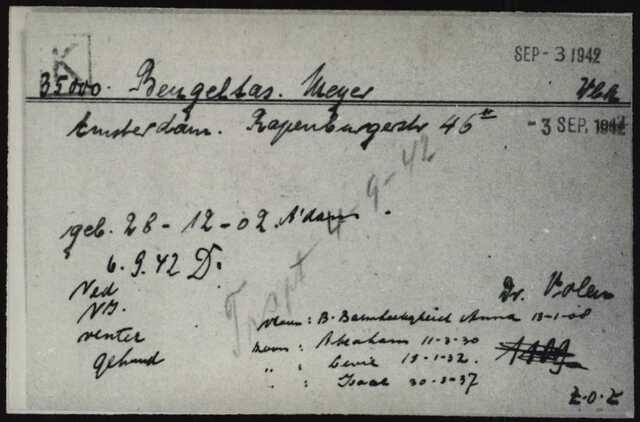 K
SEP - 3 1942
35000. Beugeltas. Meyer
Amsterdam. Rapenburgerstr 46 II
- 3 SEP. 1942
geb. 28 - 12 - 02. A'dam.
6. 9. 42 D.
Tropt 4-9-42
Ned
N.I.
venter
gehuwd
Dr. Polen
Vrouw: B- Anna 13-1-08
Zoon: Abraham 11-3-30
" : Levie 15-1-32.
" : Isaac 30-3-37
Z.O.Z